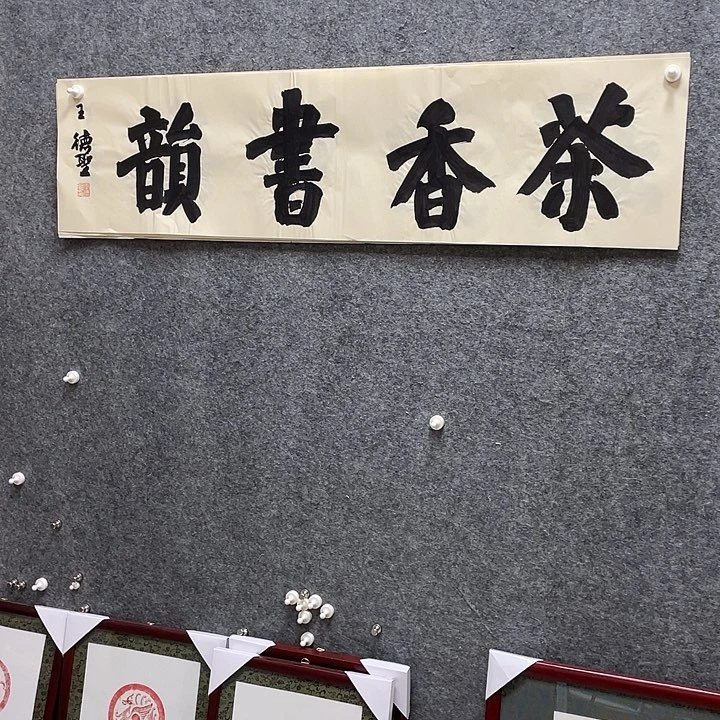 茶香書韻
王德聖